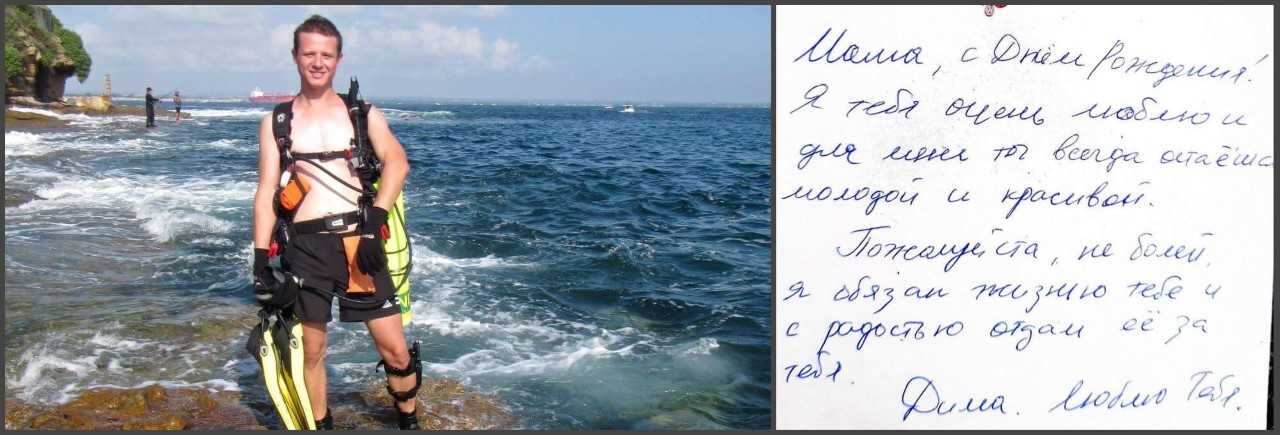 Мама, с Днём Рождения!
Я тебя очень люблю и
для меня ты всегда остаёшься
молодой и красивой.
Пожалуйста, не болей.
Я обязан жизнью тебе и
с радостью отдам её за
тебя.
Дима. Люблю Тебя.